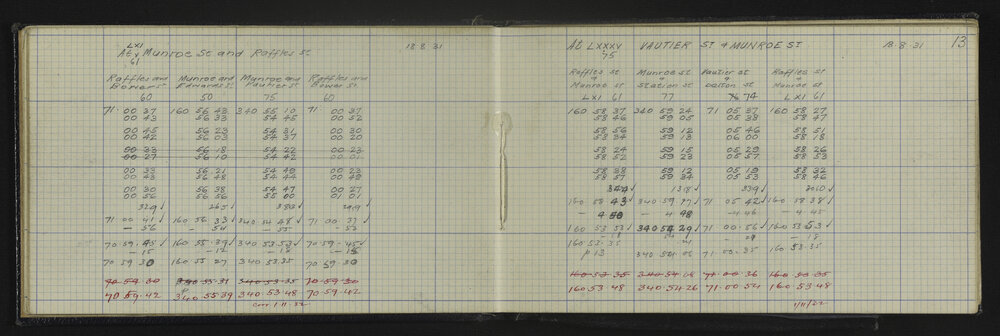 LXI
At Munroe St and Raffles St 18.8.31
61
Raffles and Munroe and Munroe and Raffles and
Bower St Edwards St Vautier St Bower St
60 50 75 60
71. 00 37 160 56 43 340 55 10 71. 00 37
00 43 56 33 54 45 00 52
00 45 56 23 54 31 00 30
00 42 56 03 54 37 00 20
00 33 56 18 54 22 00 23
00 27 56 10 54 42 00 01
00 33 56 21 54 40 00 23
00 43 56 48 54 44 00 48
00 30 56 38 54 47 00 27
00 56 56 56 55 00 01 01
71 00 41 160 56 33 340 54 48 71 00 37
70 59.45 160 55.39 340 53.53 70 59.45
- 15
70 59.30 160 55 27 340 53.35 70 59.30
70 59.30 340 53.35 70 59.30
70 59.42 340 55.39 340.53.48 70 59.42
Corr. 1.11.32
13
At LXXXV VAUTIER ST & MUNROE ST 18.8.31
75
Raffles St Munroe St Vautier St Raffles St
& & & &
Munroe St Station St Dalton St Munroe St
LXI 61 77 74 LXI 61
160 58 37 340 59 24 71 05 37 160 58 27
58 46 59 05 05 38 58 47
58 56 59 12 05 46 58 51
58 34 59 13 06 00 58 18
58 24 59 15 05 29 58 26
58 52 59 23 05 57 58 53
58 38 59 12 05 19 58 32
58 57 59 34 05 53 58 46
160 58 43 340 59 17 71 05 42 160 58 38
- 4 50 - 4 48 - 4.46 - 4.45
160 53 53 340 54 29 71. 00.56 160 53 53
160 53.35 71.00.35 160 53.35
160 53 35 340 54 08 71 00 36 160 53 35
160 53 48 340 54 26 71. 00 54 160 53 48
1/11/32